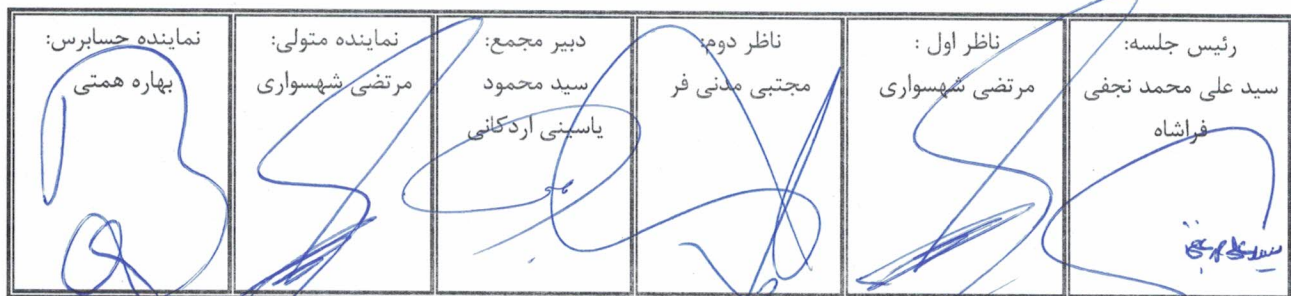 رئیس جلسه:
سید علی محمد نجفی
فراشاه
ناظر اول :
مرتضی شهسواری
ناظر دوم:
مجتبی مدنی فر
دبیر مجمع:
سید محمود
یاسینی اردکانی
نماینده متولی:
مرتضی شهسواری
نماینده حسابرس:
بهاره همتی